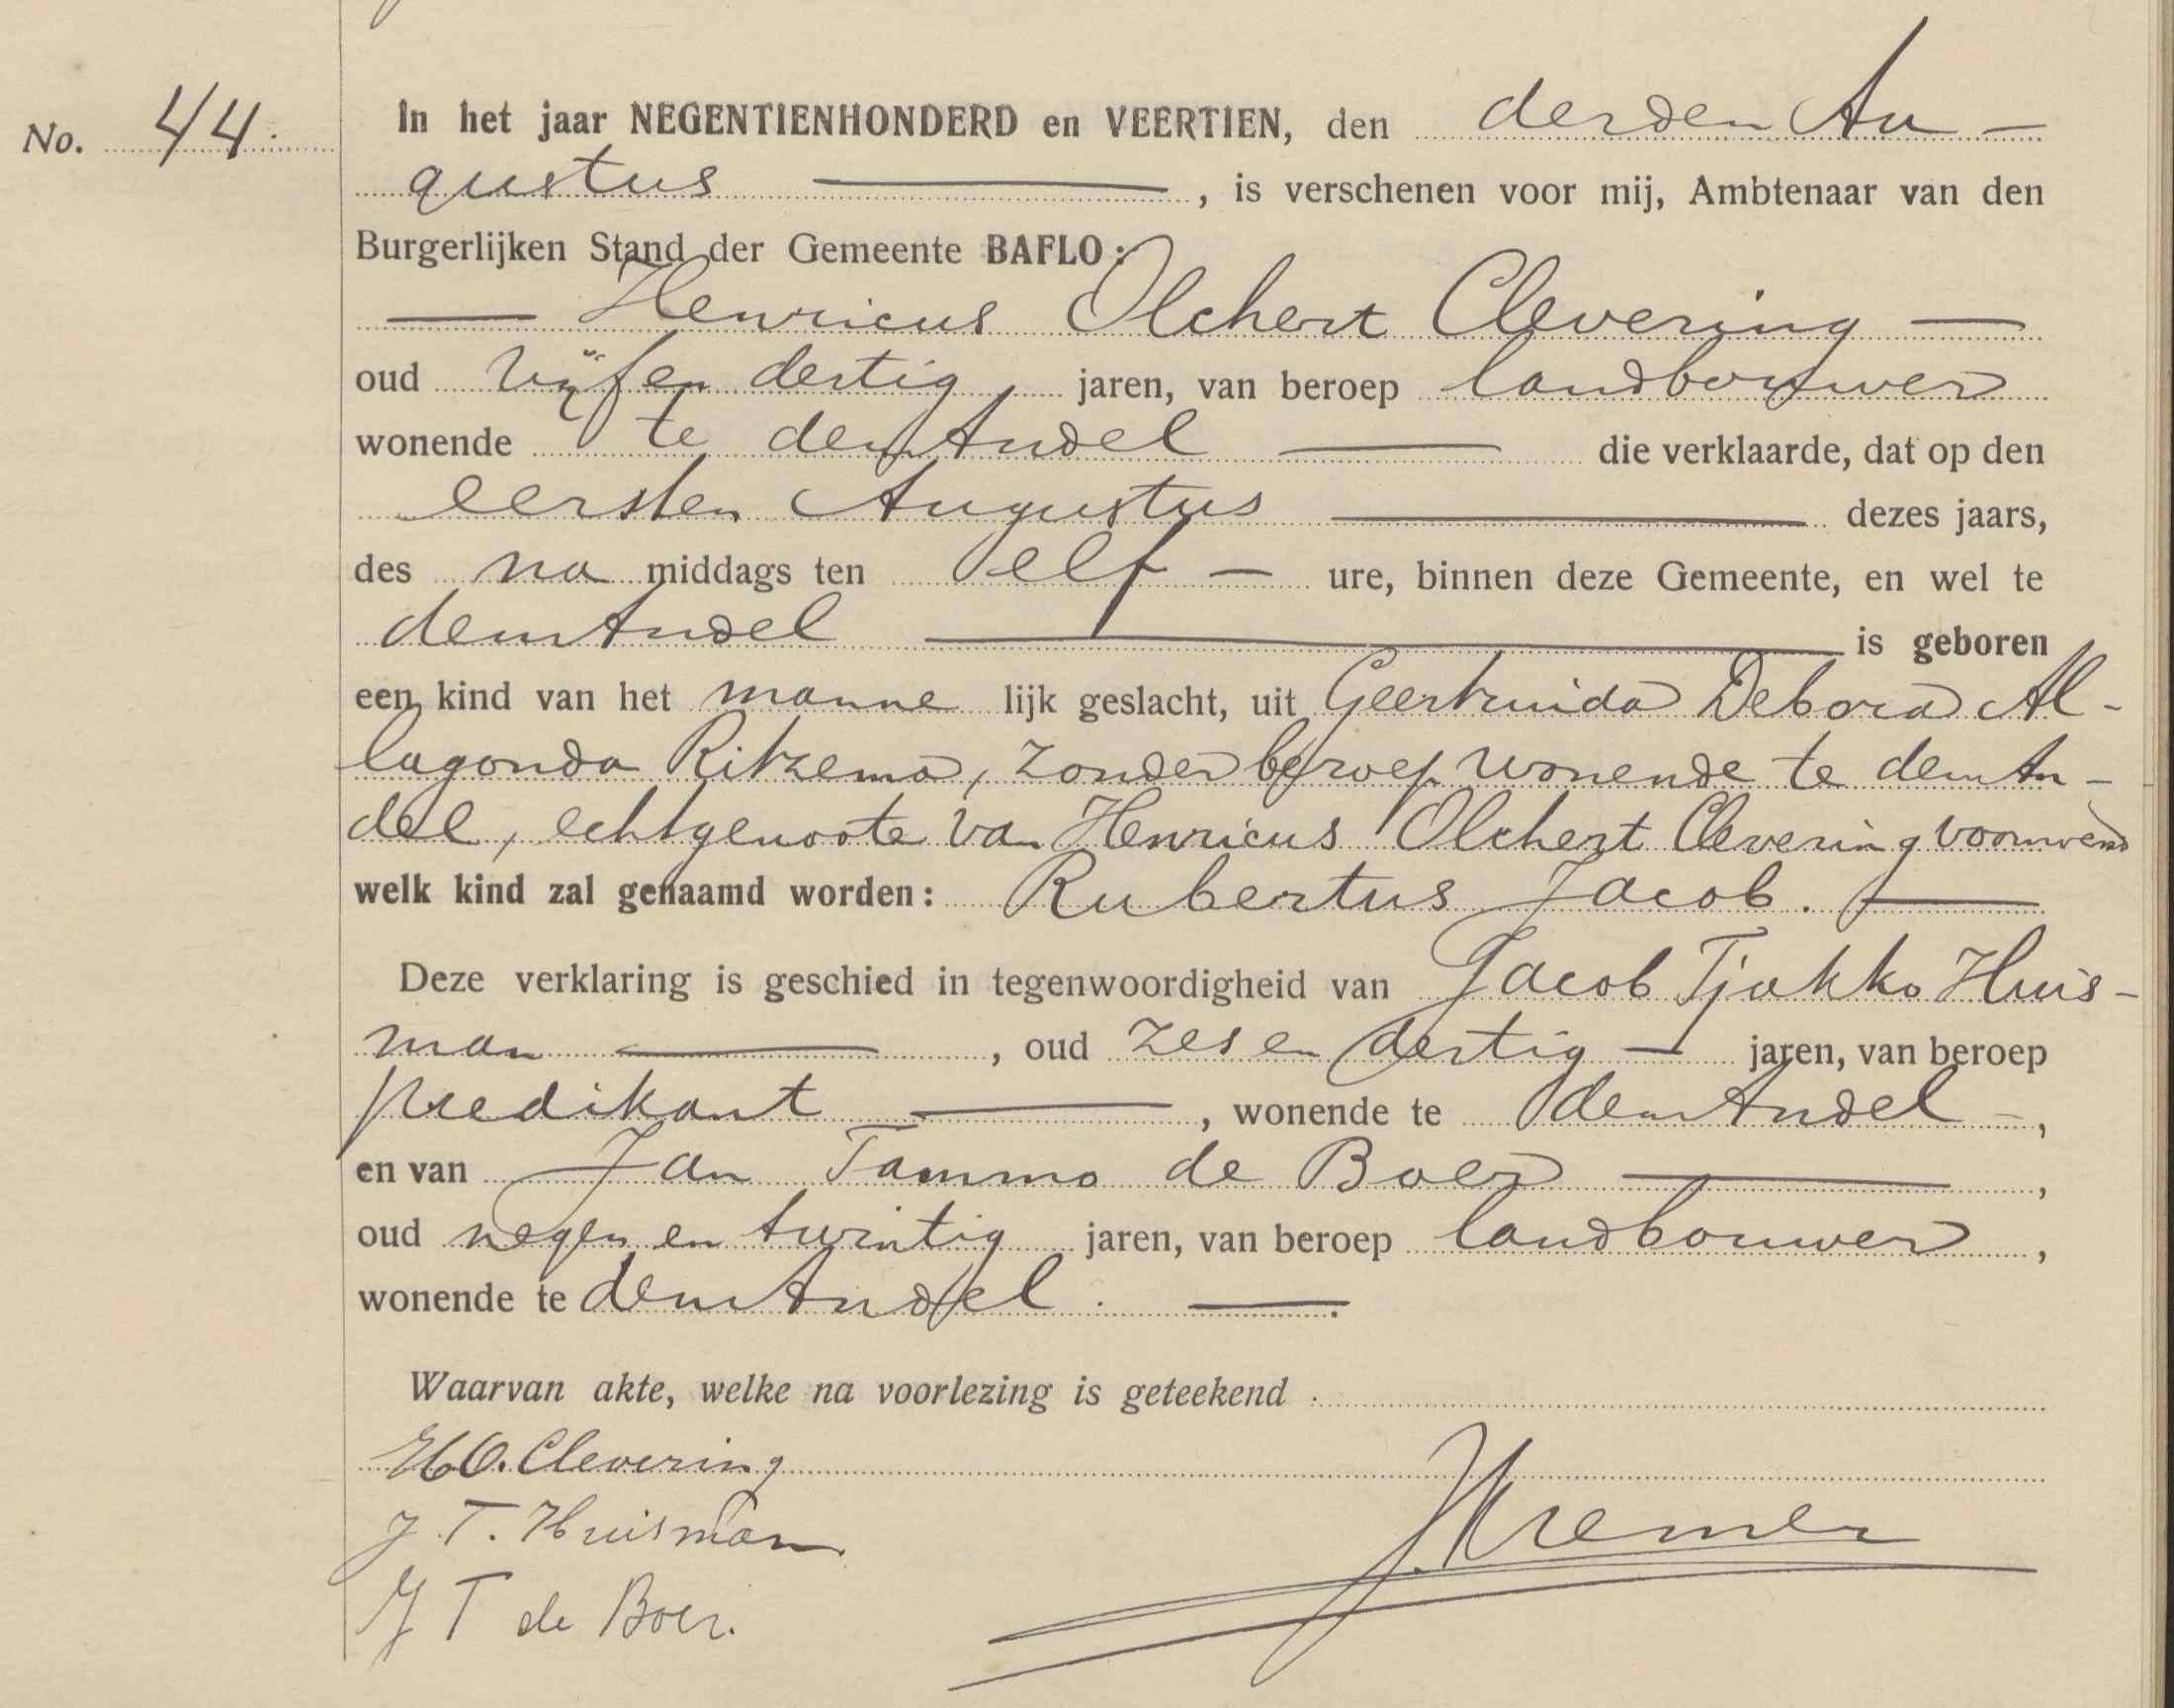 No. 44.
In het jaar NEGENTIENHONDERD en VEERTIEN, den derden Au-
gustus, is verschenen voor mij, Ambtenaar van den
Burgerlijken Stand der Gemeente BAFLO:
Henricus Olchert Clevering
oud vijf en dertig jaren, van beroep landbouwer
wonende te den Andel die verklaarde, dat op den
eersten Augustus dezes jaars,
des na middags ten elf ure, binnen deze Gemeente, en wel te
den Andel is geboren
een kind van het manne lijk geslacht, uit Geertruida Debora Al-
lagonda Ritzema, zonder beroep wonende te den An-
del, echtgenoote van Henricus Olchert Clevering voornoemd
welk kind zal genaamd worden: Rubertus Jacob.
Deze verklaring is geschied in tegenwoordigheid van Jacob Tjakko Huis-
man, oud zes en dertig jaren, van beroep
predikant, wonende te den Andel,
en van Jan Tammo de Boer,
oud negen en twintig jaren, van beroep landbouwer,
wonende te den Andel.
Waarvan akte, welke na voorlezing is geteekend.
H.O. Clevering
J. T. Huisman
J T de Boer.
J. Kremer